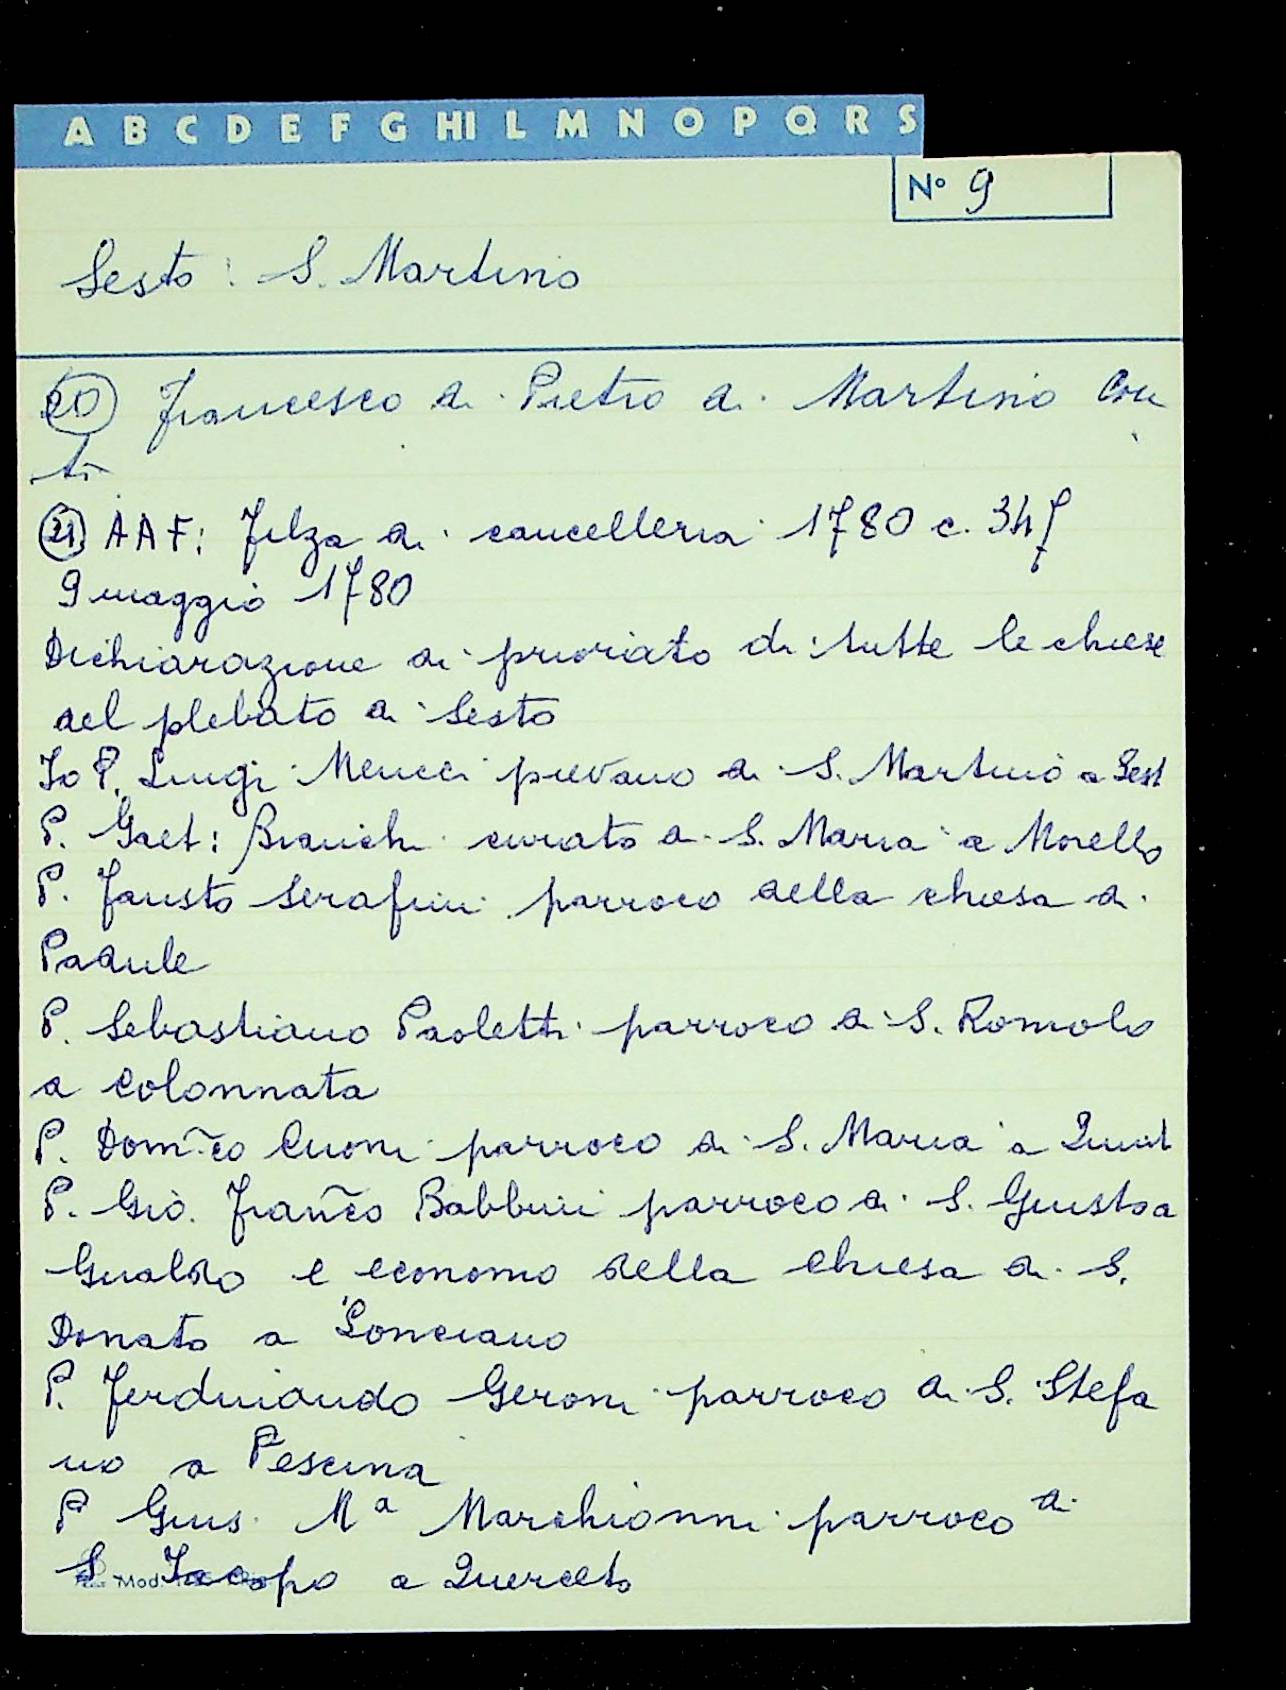 A B C D E F G HI L M N O P Q R S
N° 9
Sesto: S. Martino
20 Francesco di Pietro di Martino Con
ti
21 AAF: Filza di cancelleria 1780 c. 347
9 maggio 1780
Dichiarazione di prioriato di tutte le chiese
del plebato di Sesto
Io P. Luigi Meucci pievano di S. Martino a Sest
P. Gaet: Bianchi curato di S. Maria a Morello
P. Fausto Serafini parroco della chiesa di
Padule
P. Sebastiano Paoletti parroco di S. Romolo
a Colonnata
P. Dom̃co Cuoni parroco di S. Maria a Quint
P. Gio. Frañco Babbini parroco di S. Giusto a
Gualdo e economo della chiesa di S.
Donato a Lonciano
P. Ferdinando Geroni parroco di S. Stefa
no a Pescina
P Gius. Mª Marchionni parroco di
S. Iacopo a Querceto
Mod.